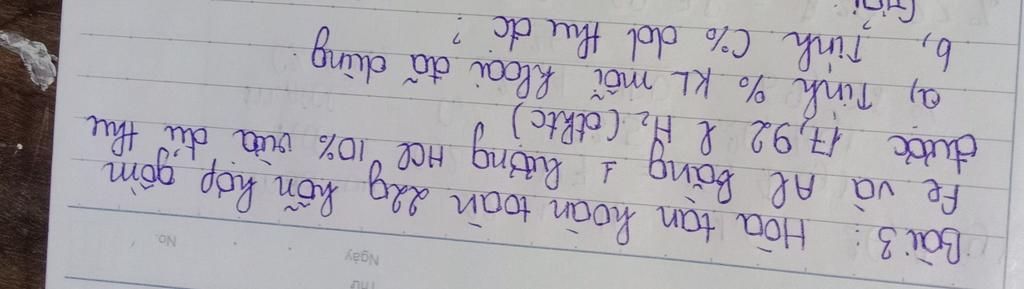 Thứ
Ngày No.
Bài 3: Hòa tan hoàn toàn 22g hỗn hợp gồm
Fe và Al bằng 1 lượng HCl 10% vừa đủ thu
được 17,92 l H₂ (đktc)
a, Tính % KL mỗi kloại đã dùng.
b, Tính C% dd thu đc?
Giải: